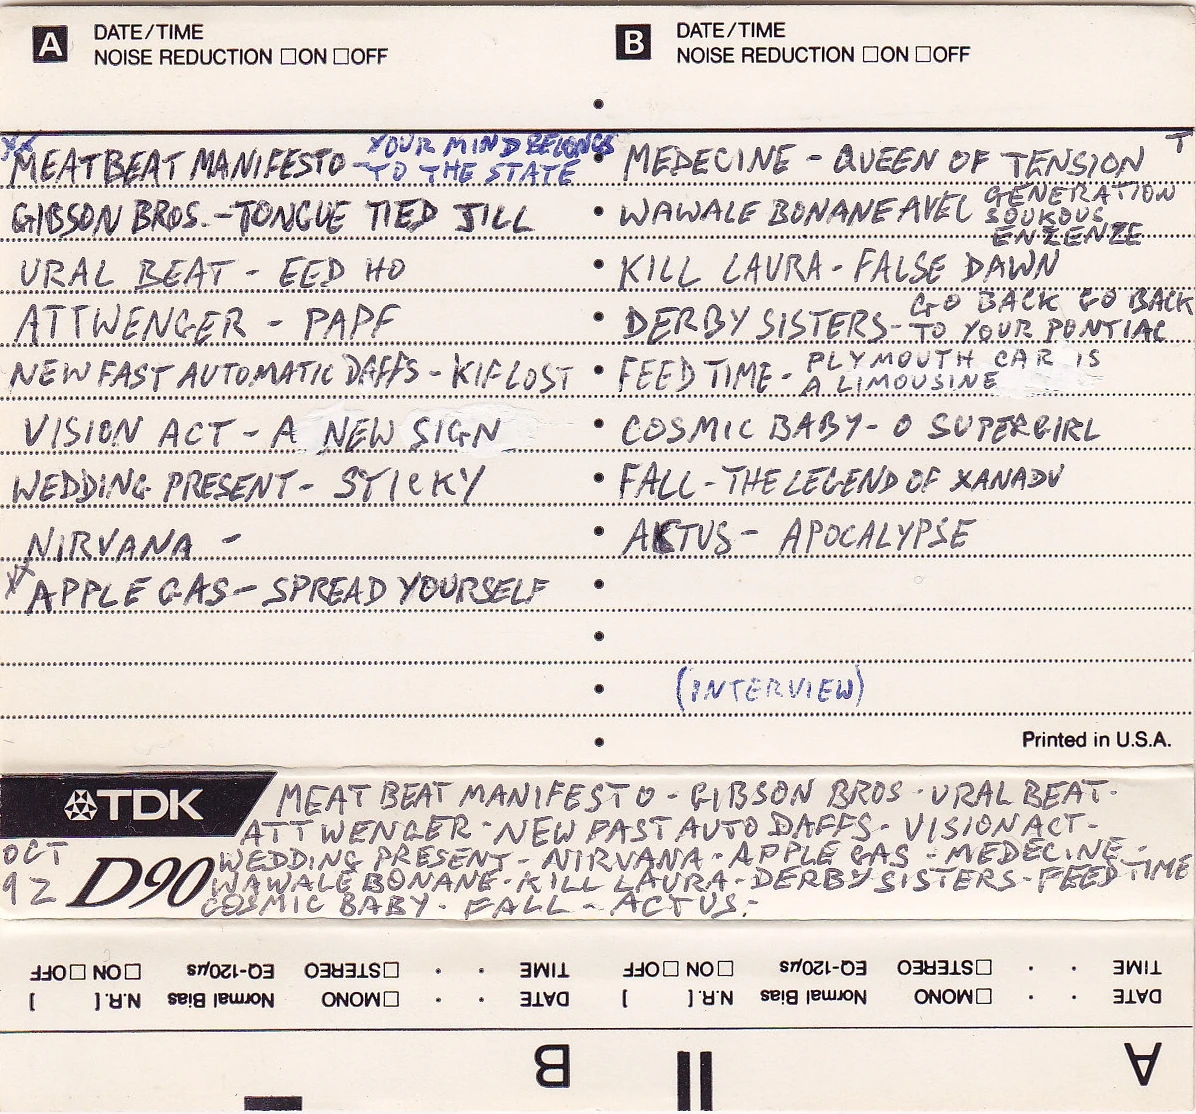 A DATE/TIME
NOISE REDUCTION □ON □OFF
B DATE/TIME
NOISE REDUCTION □ON □OFF
MEAT BEAT MANIFESTO - YOUR MIND BELONGS
TO THE STATE
GIBSON BROS. - TONGUE TIED JILL
URAL BEAT - EED HO
ATTWENGER - PAPF
NEW FAST AUTOMATIC DAFFS - KIF LOST
VISION ACT - A NEW SIGN
WEDDING PRESENT - STICKY
NIRVANA -
APPLE GAS - SPREAD YOURSELF
MEDECINE - QUEEN OF TENSION T
WAWALE BONANE AVEL GENERATION
SOUKOUS
ENZENZE
KILL LAURA - FALSE DAWN
DERBY SISTERS - GO BACK GO BACK
TO YOUR PONTIAC
FEED TIME - PLYMOUTH CAR IS
A LIMOUSINE
COSMIC BABY - O SUPERGIRL
FALL - THE LEGEND OF XANADU
AKTUS - APOCALYPSE
(INTERVIEW)
Printed in U.S.A.
TDK
D90
OCT
92
MEAT BEAT MANIFESTO - GIBSON BROS - URAL BEAT -
ATTWENGER - NEW FAST AUTO DAFFS - VISION ACT -
WEDDING PRESENT - NIRVANA - APPLE GAS - MEDECINE -
WAWALE BONANE - KILL LAURA - DERBY SISTERS - FEED TIME
COSMIC BABY - FALL - ACTUS -
A
DATE · · □MONO Normal Bias N.R. [ ]
TIME · · □STEREO EQ-120µs □ON □OFF
B
DATE · · □MONO Normal Bias N.R. [ ]
TIME · · □STEREO EQ-120µs □ON □OFF